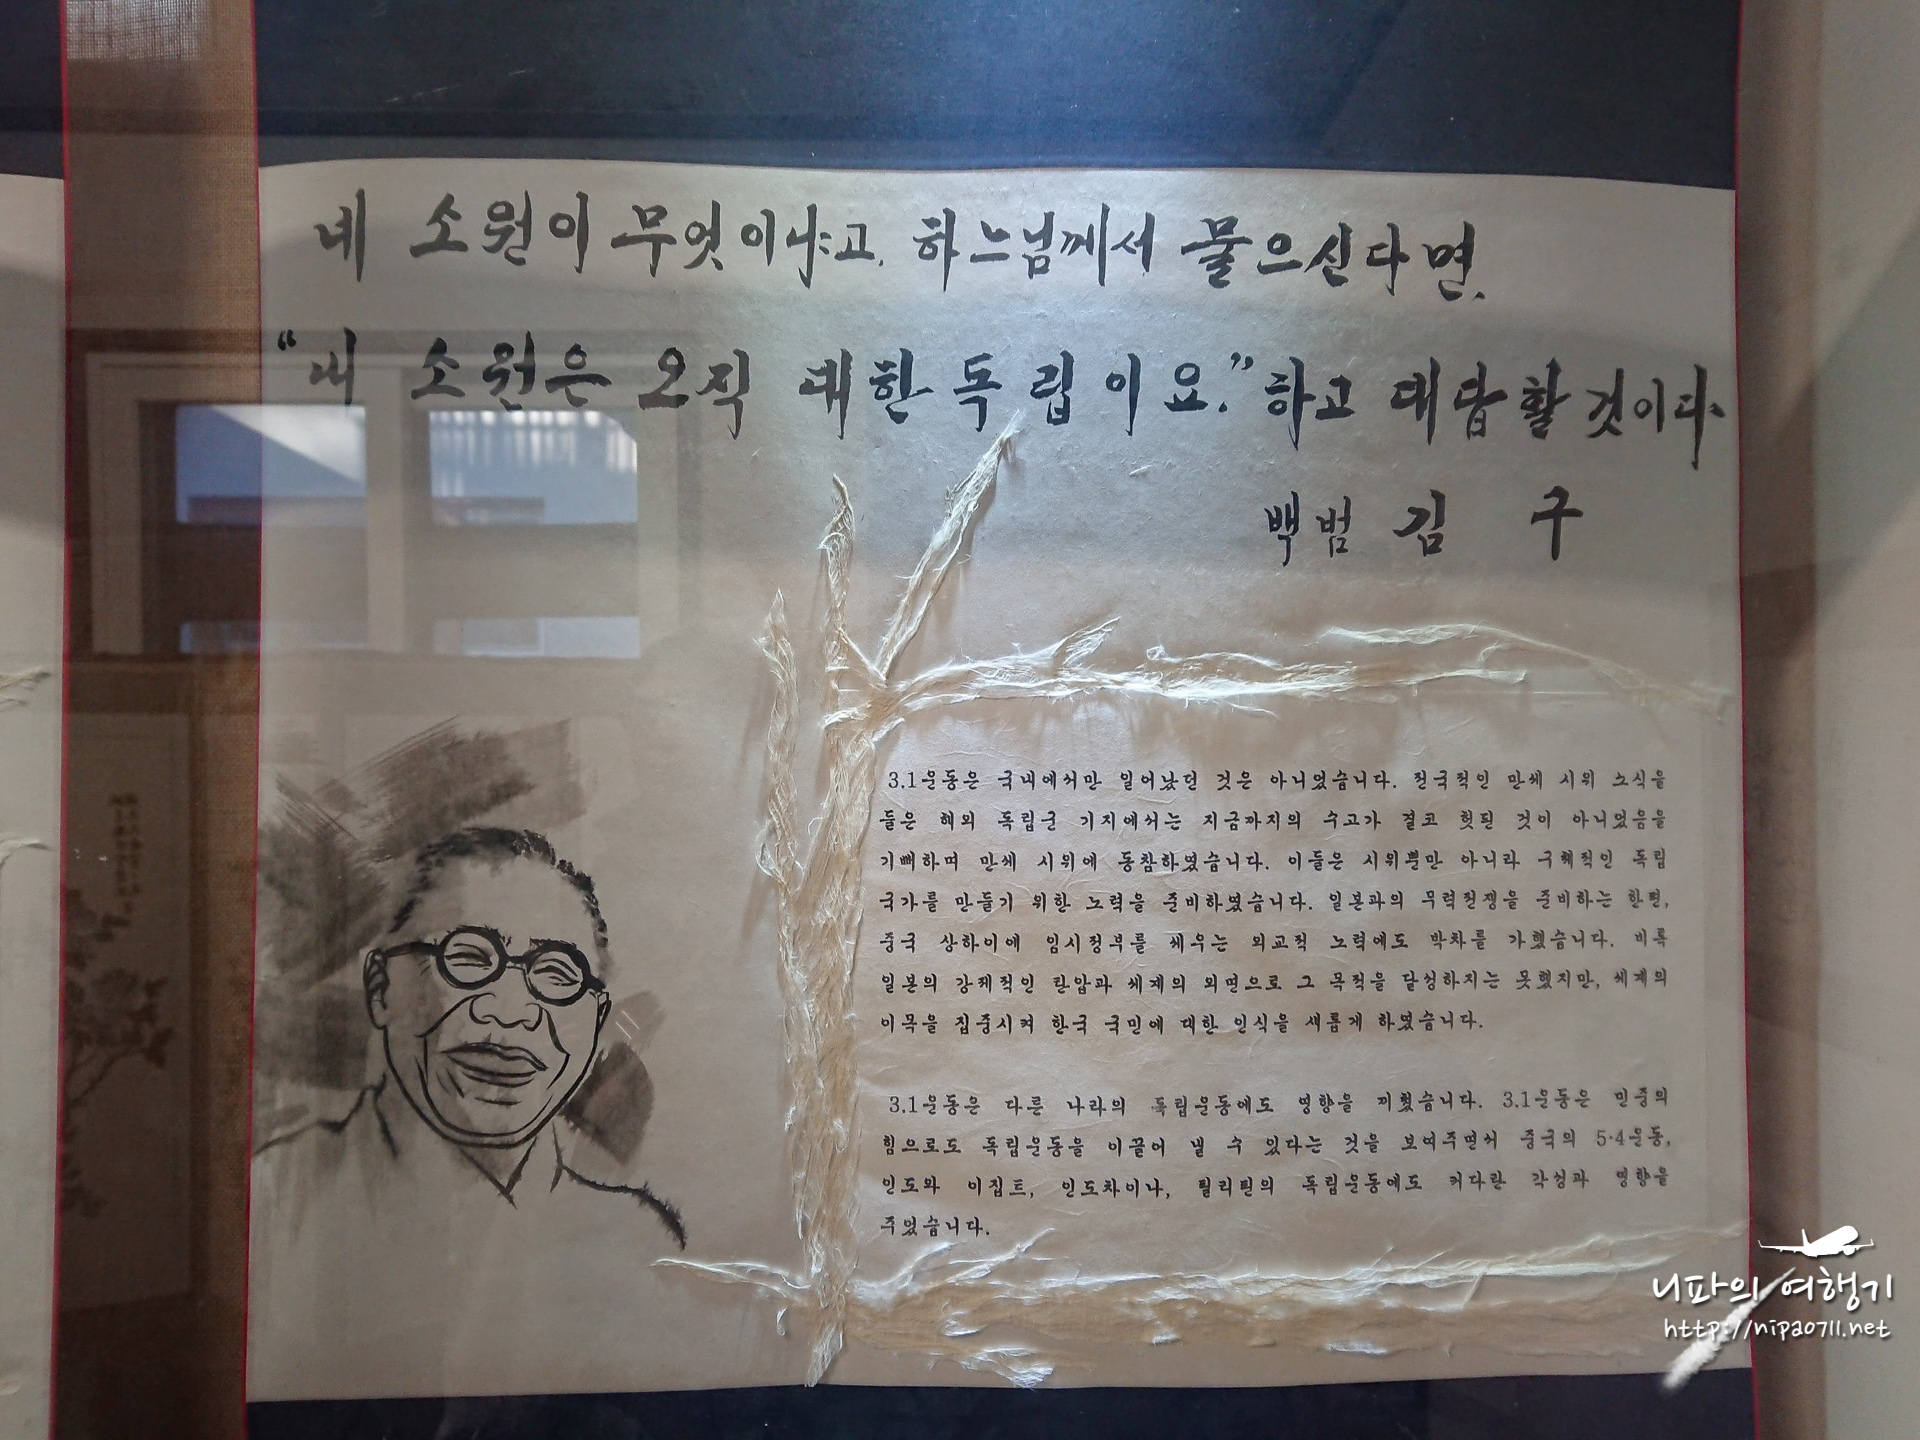 네 소원이 무엇이냐고, 하느님께서 물으신다면,
“내 소원은 오직 대한독립이요.”하고 대답할 것이다
백범 김 구
3.1운동은 국내에서만 일어났던 것은 아니었습니다. 전국적인 만세 시위 소식을
들은 해외 독립군 기지에서는 지금까지의 수고가 결코 헛된 것이 아니었음을
기뻐하며 만세 시위에 동참하였습니다. 이들은 시위뿐만 아니라 구체적인 독립
국가를 만들기 위한 노력을 준비하였습니다. 일본과의 무력전쟁을 준비하는 한편,
중국 상하이에 임시정부를 세우는 외교적 노력에도 박차를 가했습니다. 비록
일본의 강제적인 탄압과 세계의 외면으로 그 목적을 달성하지는 못했지만, 세계의
이목을 집중시켜 한국 국민에 대한 인식을 새롭게 하였습니다.
3.1운동은 다른 나라의 독립운동에도 영향을 끼쳤습니다. 3.1운동은 민중의
힘으로도 독립운동을 이끌어 낼 수 있다는 것을 보여주면서 중국의 5·4운동,
인도와 이집트, 인도차이나, 필리핀의 독립운동에도 커다란 각성과 영향을
주었습니다.
니파의 여행기
http://nipa0711.net